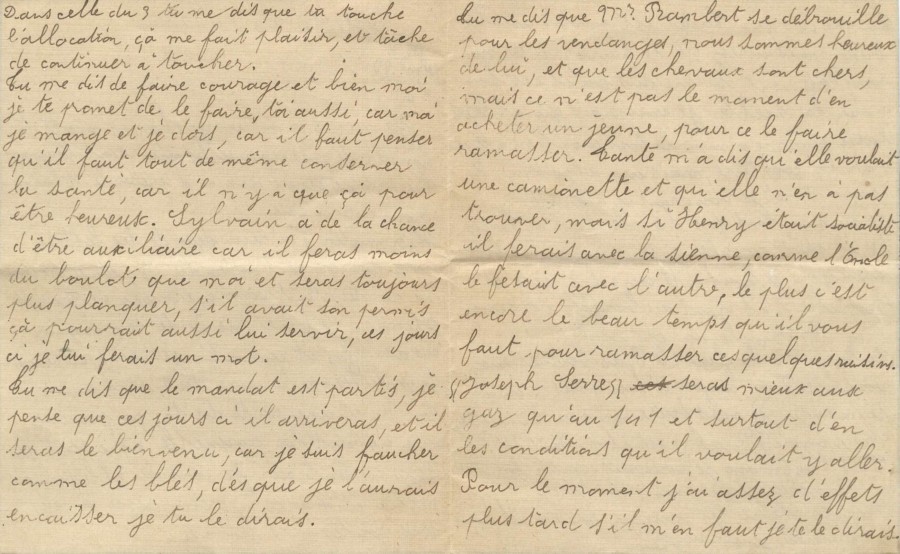 Dans celle du 3 tu me dis que ta touche
l'allocation, çà me fait plaisir, et tâche
de continuer à toucher.
Tu me dis de faire courage et bien moi
je te promet de le faire, toi aussi, car moi
je mange et je dors, car il faut penser
qu'il faut tout de même conserver
la santé, car il n'y à que çà pour
être heureux. Sylvain à de la chance
d'être auxiliaire car il feras moins
du boulot que moi et seras toujours
plus planquer, s'il avait son permis
çà pourrait aussi lui servir, ces jours
ci je lui ferais un mot.
Tu me dis que le mandat est partis, je
pense que ces jours ci il arriveras, et il
seras le bienvenu, car je suis faucher
comme les blés, dés que je l'aurais
encaisser je tu le dirais.
Tu me dis que Mr. Rambert se débrouille
pour les vendanges, nous sommes heureux
de lui, et que les chevaux sont chers,
mais ce n'est pas le moment d'en
acheter un jeune, pour ce le faire
ramasser. Tante m'a dis qu'elle voulait
une camionette et qu'elle n'en à pas
trouver, mais si Henry était socialiste
il ferais avec la sienne, comme l'Oncle
le fesait avec l'autre, le plus c'est
encore le beau temps qu'il vous
faut pour ramasser ces quelques raisins.
(Joseph Serres) seras mieux aux
gaz qu'au 141 et surtout d'en
les conditions qu'il voulait y aller.
Pour le moment j'ai assez d'effets
plus tard s'il m'en faut je te le dirais.